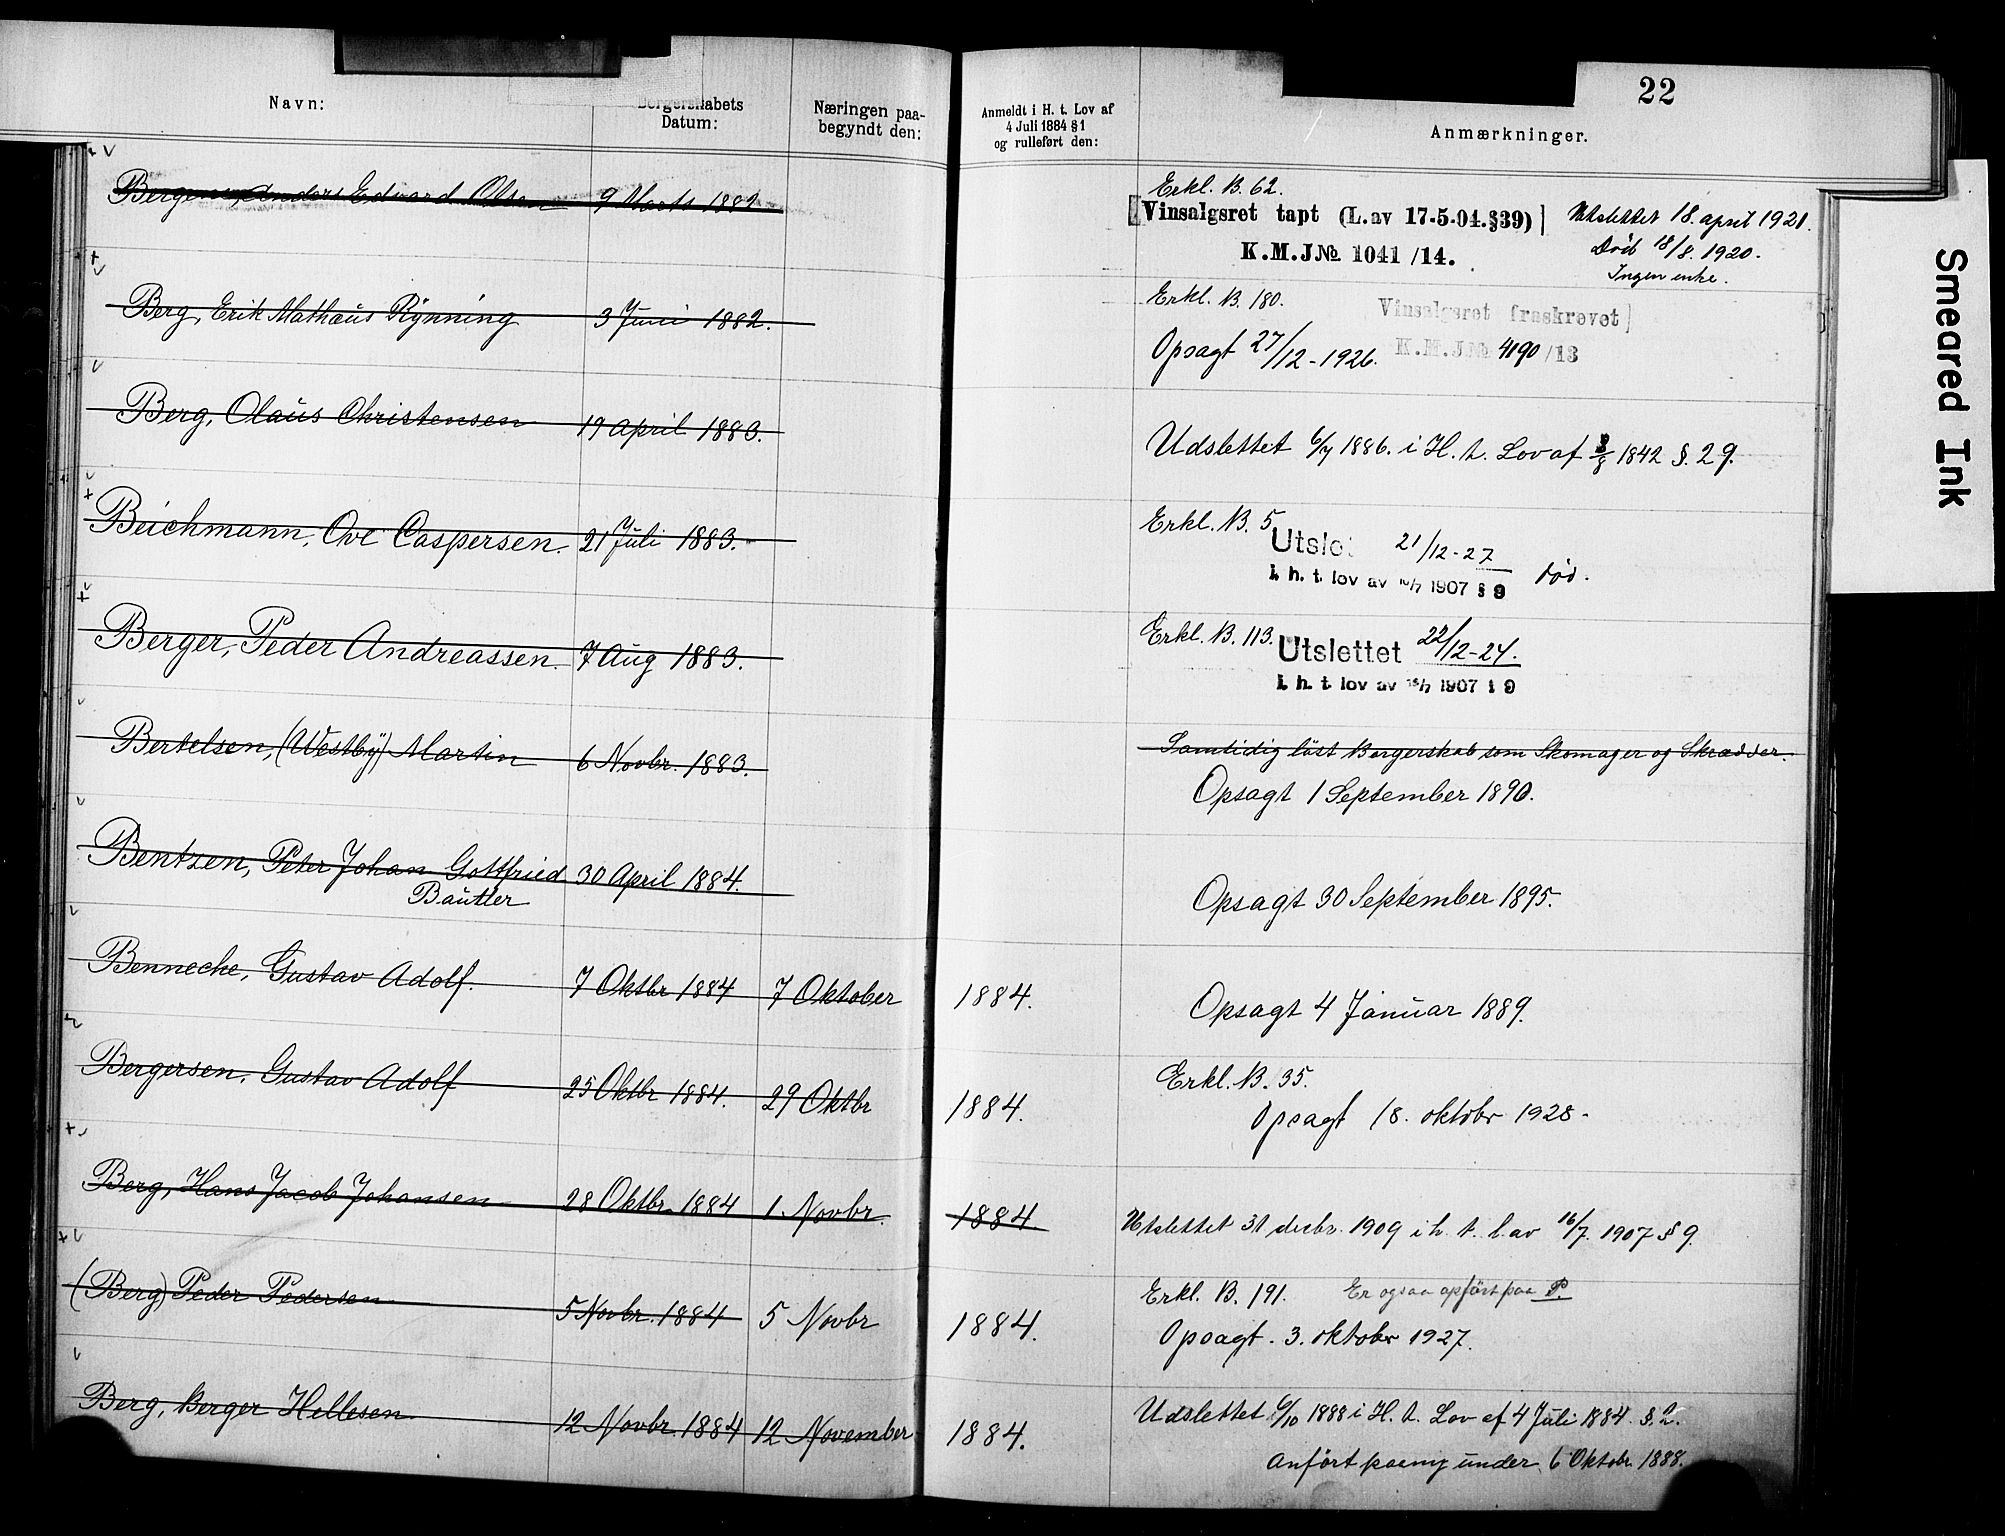 22
Navn:
Borgerskabets
Datum:
Næringen paa-
begyndt den:
Anmeldt i H. t. Lov af
4 Juli 1884 § 1
og rulleført den:
Anmærkninger.
Smeared Ink
Anders Edvard Olsen 9 Marts 1882
Erkl. B. 62.
[Vinsalgsret tapt (L.av 17-5-04.§39)] Utslettet 18. april 1921.
K.M.J.№ 1041/14. Död 18/8. 1920.
Ingen enke.
Berg, Erik Mathæus Rynning 3 Juni 1882.
Erkl. B. 180. Vinsalgsret fraskrevet]
Opsagt 27/12-1926. K.M.J.№ 4190/13
Berg, Olaus Christensen 19 April 1883.
Udslettet 6/7 1886. i H. t. Lov af 8/8 1842 §. 29.
Beichmann, Ove Caspersen. 21 Juli 1883.
Erkl. B. 5
Utslet 21/12-27
i. h. t. lov av 16/7 1907 § 9 död.
Berger, Peder Andreassen. 7 Aug 1883.
Erkl. B. 113. Utslettet 22/12-24.
i. h. t. lov av 16/7 1907 § 9
Bertelsen, (Westby) Martin 6 Novbr. 1883.
Samtidig löst Borgerskab som Skomager og Skrædder.
Opsagt 1 September 1890.
Bentzen, Peter Johan Gottfried 30 April 1884.
Bautler
Opsagt 30 September 1895.
Benneche, Gustav Adolf. 7 Oktbr 1884 7 Oktober 1884.
Opsagt 4 Januar 1889.
Bergersen, Gustav Adolf 25 Oktbr 1884. 29 Oktbr 1884.
Erkl. B. 35.
Opsagt 18. oktobr 1928.
Berg, Hans Jacob Johansen 28 Oktbr 1884 1. Novbr. 1884
Utslettet 31 decbr. 1909 i h. t. l. av 16/7. 1907 § 9.
(Berg) Peder Pedersen 5 Novbr. 1884 5 Novbr 1884.
Erkl. B. 191. Er ogsaa opfört paa P.
Opsagt. 3. oktobr 1927.
Berg, Berger Hellesen 12 Novbr. 1884 12 November 1884.
Udslettet 6/10 1888 i H. t. Lov af 4 Juli 1884 §. 2.
Anfört paany under 6 Oktobr. 1888.